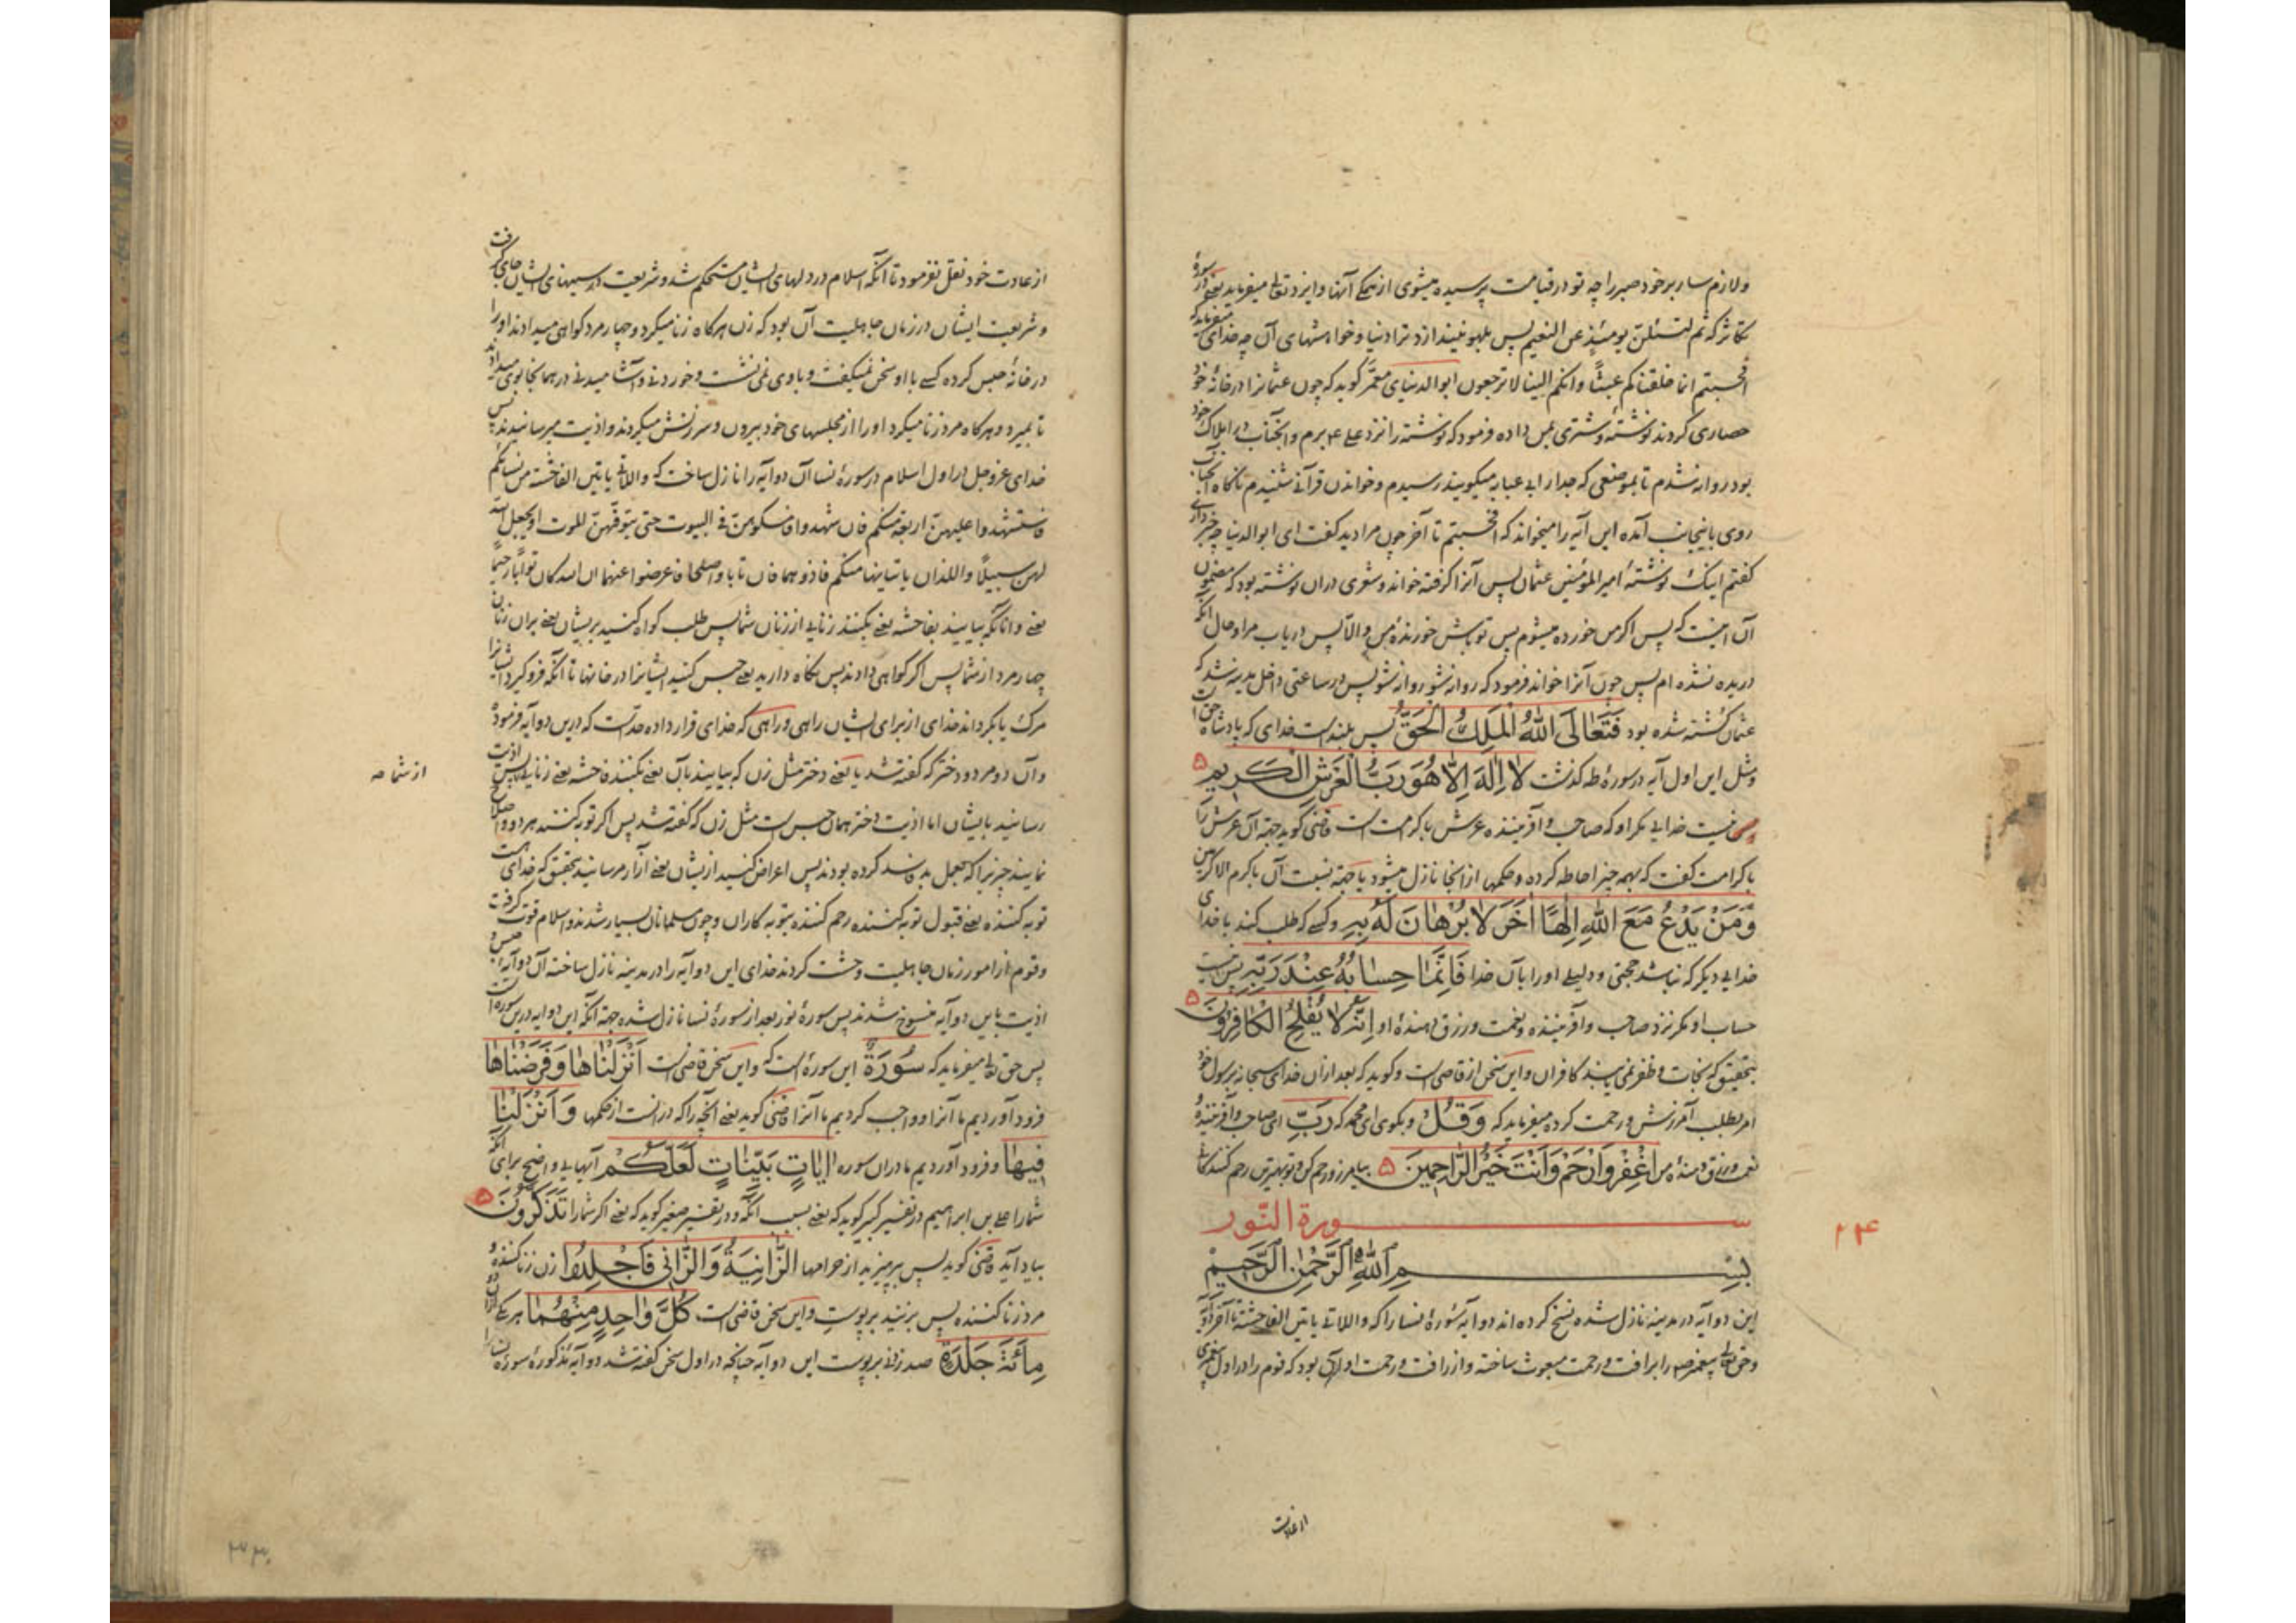 ولازم ساز بر خود صبر را چه تو در قیامت پرسیده میشوی از همکی آنها و ایزد تعالی میفرماید یعنی در سورهٔ
تکاثر که ثم لتسئلن یومئذ عن النعیم پس بلهو نیندازد ترا دنیا و خواهشهای آن چه خدای میفرماید که
افحسبتم انما خلقناکم عبثاً وانکم الینا لا ترجعون ابو الدنیای معمّر کوید که چون عثمانرا در خانهٔ خود
حصاری کردند نوشتهٔ و شتری بمن داده فرمود که نوشته را نزد علی ع برم و آنجناب در املاک خود
بود روانه شدم تا بموضعی که جدار ابی عبایه میکویند رسیدم و خواندن قرآنی شنیدم ناکاه آنجناب
روی باینجانب آمده این آیه را میخواند که افحسبتم تا آخر چون مرا دید کفت ای ابو الدنیا چه خبر داری
کفتم اینک نوشتهٔ امیرالمؤمنین عثمان پس آنرا کرفته خواند و شعری دران نوشته بود که مضمون
آن اینست که پس اکر من خورده میشوم پس تو باش خورندهٔ من والاّ پس دریاب مرا و حال آنکه
دریده نشده ام پس چون آنرا خواند فرمود که روانه شو روانه شو پس در ساعتی داخل مدینه شد که
عثمان کشته شده بود فَتَعَالَى اللهُ الْمَلِكُ الْحَقُّ پس بلند است خدای که پادشاه حق است
و مثل این اول آیه در سورهٔ طه کذشت لَا اِلٰهَ اِلَّا هُوَ رَبُّ الْعَرْشِ الْكَرِيمِ ۵
نیست خدایی مکر او که صاحب و آفریننده عرش با کرامت است قاضی کوید جهة آن عرش را
با کرامت کفت که بهمه چیز احاطه کرده و حکمها از انجا نازل میشود یا جهة نسبت آن باکرم الاکرمین
وَمَنْ يَدْعُ مَعَ اللهِ اِلٰهًا اٰخَرَ لَا بُرْهَانَ لَهُ بِهِ و کسی که طلب کند با خدای
خدایی دیکر که نباشد حجتی و دلیلی او را بآن خدا فَاِنَّمَا حِسَابُهُ عِنْدَ رَبِّهِ پس نیست
حساب او مکر نزد صاحب و آفریننده و نعمت و رزق دهندهٔ او اِنَّهُ لَا يُفْلِحُ الْكَافِرُونَ ۵
بتحقیق که نجات و ظفر نمی یابند کافران و این سخن از قاضی است و کوید که بعد ازان خدای سبحانه برسول خود
امر بطلب آمرزش و رحمت کرده میفرماید که وَقُلْ و بکوی ای محمد که رَبِّ ای صاحب و آفرینندهٔ
نعمت و رزق دهندهٔ من اغْفِرْ وَارْحَمْ وَاَنْتَ خَيْرُ الرَّاحِمِينَ ۵ بیامرز و رحم کن و تو بهترین رحم کنندکانی
سورة النّور
۲۴
بِسْمِ اللهِ الرَّحْمٰنِ الرَّحِيمِ
این دو آیه در مدینه نازل شده نسخ کرده اند دو آیهٔ سورهٔ نسا را که واللاتی یاتین الفاحشة تا آخر دو آیه
و حق تعالی پیغمبر ص را برافت و رحمت مبعوث ساخته و از رافت و رحمت او آن بود که قوم را در اول پیغمبری
از عادت
از عادت خود نقل نفرمود تا آنکه اسلام در دلهای ایشان مستحکم شد و شریعت در سینهای ایشان جای کرفت
و شریعت ایشان در زمان جاهلیت آن بود که زن هرکاه زنا میکرد و چهار مرد کواهی میدادند او را
در خانهٔ حبس کرده کسی با او سخن نمیکفت و با وی نمی نشت و خوردنی و آشامیدنی در همانجا بوی میدادند
تا بمیرد و هرکاه مرد زنا میکرد او را از مجلسهای خود بیرون و سرزنش میکردند و اذیت میرسانیدند پس
خدای عزوجل در اول اسلام در سورهٔ نسا آن دو آیه را نازل ساخت که واللاتی یاتین الفاحشة من نسائکم
فاستشهدوا علیهنّ اربعة منکم فان شهدوا فامسکوهنّ فی البیوت حتی یتوفّهنّ الموت او یجعل الله
لهن سبیلاً واللذان یاتیانها منکم فاذوهما فان تابا واصلحا فاعرضوا عنهما ان الله کان توّاباً رحیماً
یعنی و آنانکه بیایند بفاحشه یعنی بکنند زنایی از زنان شما پس طلب کواه کنید بریشان یعنی بران زنان
چهار مرد از شما پس اکر کواهی دادند پس نکاه دارید یعنی حبس کنید ایشانرا در خانها تا آنکه فرو کیرد ایشانرا
مرک یا بکرداند خدای از برای ایشان راهی و راهی که خدای قرار داده حدّست که درین دو آیه فرموده
و آن دو مرد و دختر که کفته شد یا یعنی دختر مثل زن که بیایند بآن یعنی بکنند فاحشه یعنی زنایی پس اذیت
از شما صه
رسانید بایشان اما اذیت دختر همان حبس است مثل زن که کفته شد پس اکر توبه کنند هر دو و اصلاح
نمایند چیزیرا که بعمل بد فاسد کرده بودند پس اعراض کنید ازیشان یعنی آزار مرسانید بتحقیق که خدای هست
توبه کننده یعنی قبول توبه کننده رحم کننده بتوبه کاران و چون مسلمانان بسیار شدند و اسلام قوت کرفت
و قوم از امور زمان جاهلیت وحشت کردند خدای این دو آیه را در مدینه نازل ساخته آن دو آیهٔ حبس و
اذیت باین دو آیه منسوخ شدند پس سورهٔ نور بعد از سورهٔ نسا نازل شده جهة آنکه این دو ایه درین سوره است
پس حق تعالی میفرماید که سُورَةٌ این سورهٔ است که و این سخن قاضی است اَنْزَلْنَاهَا وَفَرَضْنَاهَا
فرود آوردیم ما آنرا و واجب کردیم ما آنرا قاضی کوید یعنی آنچه را که درانست از حکمها وَاَنْزَلْنَا
فِيهَا و فرود آوردیم ما دران سوره اٰيَاتٍ بَيِّنَاتٍ لَعَلَّكُمْ آیهایی واضح برای آنکه
شما را علی بن ابراهیم در تفسیر کبیر کوید که یعنی بسبب آنکه و در تفسیر صغیر کوید که یعنی اکر شما را تَذَكَّرُونَ ۵
بیاد آید قاضی کوید پس بپرهیزید از حرامها الزَّانِيَةُ وَالزَّانِي فَاجْلِدُوا زن زنا کننده و
مرد زنا کننده پس بزنید بر پوست و این سخن قاضی است كُلَّ وَاحِدٍ مِنْهُمَا هر یکی ازان دو
مِائَةَ جَلْدَةٍ صد زدنی بر پوست این دو آیه چنانچه در اول سخن کفته شد دو آیهٔ مذکورهٔ سورهٔ نسا را
۳۳۰